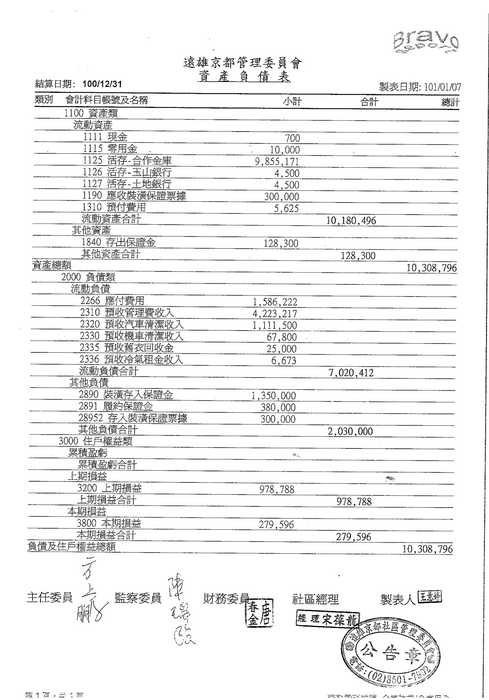 Bravo
遠雄京都管理委員會
資產負債表
結算日期: 100/12/31 製表日期: 101/01/07
類別 會計科目帳號及名稱 小計 合計 總計
1100 資產類
流動資產
1111 現金 700
1115 零用金 10,000
1125 活存-合作金庫 9,855,171
1126 活存-玉山銀行 4,500
1127 活存-土地銀行 4,500
1190 應收裝潢保證票據 300,000
1310 預付費用 5,625
流動資產合計 10,180,496
其他資產
1840 存出保證金 128,300
其他資產合計 128,300
資產總額 10,308,796
2000 負債類
流動負債
2266 應付費用 1,586,222
2310 預收管理費收入 4,223,217
2320 預收汽車清潔收入 1,111,500
2330 預收機車清潔收入 67,800
2335 預收舊衣回收金 25,000
2336 預收冷氣租金收入 6,673
流動負債合計 7,020,412
其他負債
2890 裝潢存入保證金 1,350,000
2891 履約保證金 380,000
28952 存入裝潢保證票據 300,000
其他負債合計 2,030,000
3000 住戶權益類
累積盈虧
累積盈虧合計
上期損益
3200 上期損益 978,788
上期損益合計 978,788
本期損益
3800 本期損益 279,596
本期損益合計 279,596
負債及住戶權益總額 10,308,796
主任委員 監察委員 財務委員 社區經理 製表人
經理宋葆龍
遠雄京都社區管理委員會
公告章